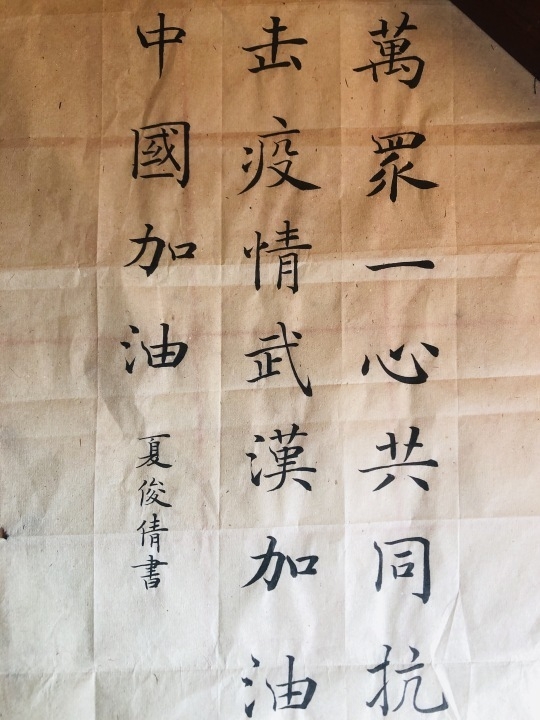 萬眾一心共同抗
击疫情武漢加油
中國加油
夏俊倩書